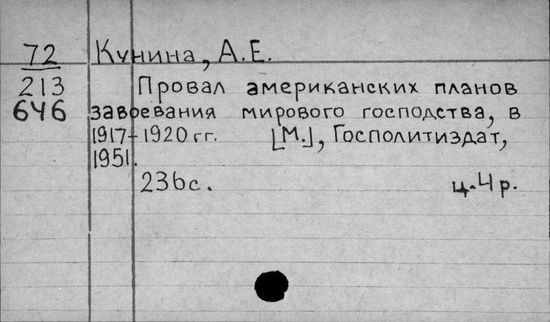 72 Кунина, А.Е.
213 Провал американских планов
646 завоевания мирового господства, в
1917-1920 гг. [М.], Госполитиздат,
1951.
236с. ц. 4 р.